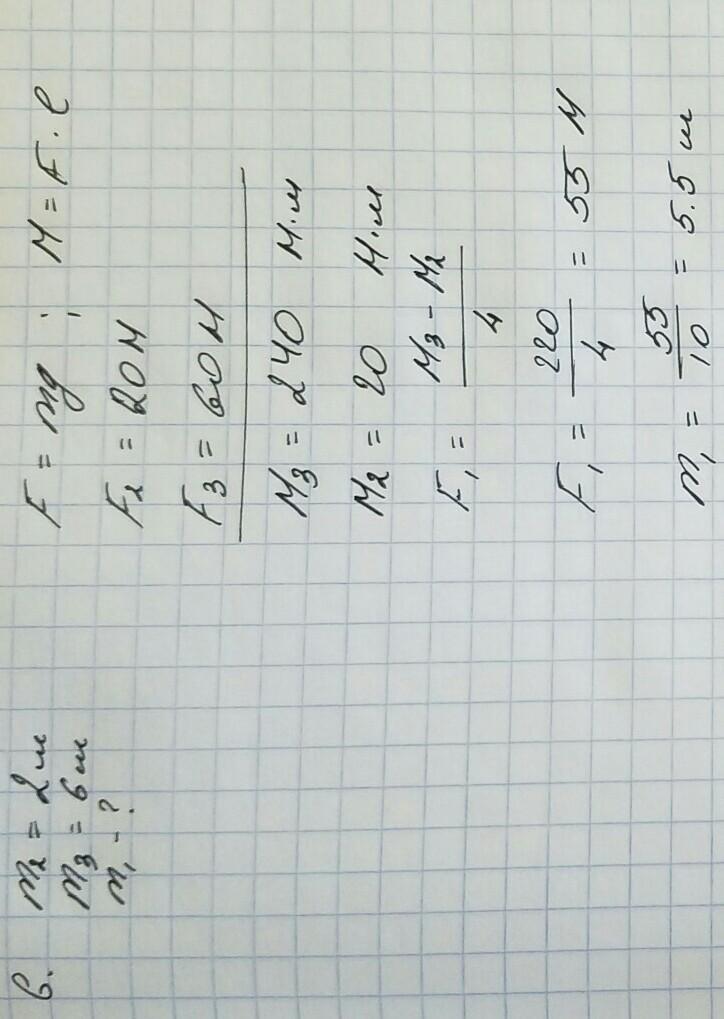 6. m₂ = 2 кг
m₃ = 6 кг
m₁ - ?
F = mg ; M = F · l
F₂ = 20 Н
F₃ = 60 Н
M₃ = 240 Н·м
M₂ = 20 Н·м
F₁ = (M₃ - M₂) / 4
F₁ = 220 / 4 = 55 Н
m₁ = 55 / 10 = 5.5 кг